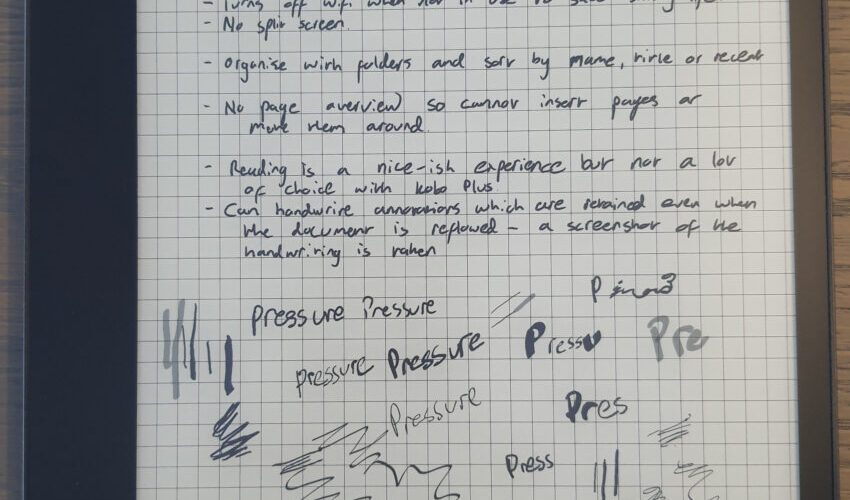 - Turns off wifi when not in use to save
- No split screen.
- organise with folders and sort by name, title or recent
- No page overview so cannot insert pages or
move them around.
- Reading is a nice-ish experience but not a lot
of choice with kobo Plus.
- Can handwrite annotations which are retained even when
the document is reflowed - a screenshot of the
handwriting is taken
Pressure Pressure
pressure Pressure Pressu Pre
Pressure Pres
Press